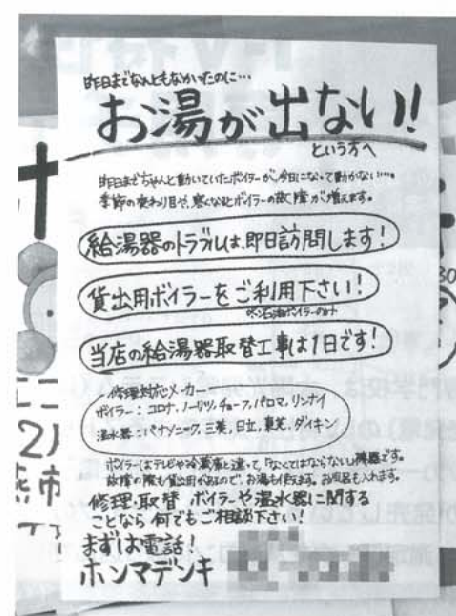 昨日までなんともなかったのに…
お湯が出ない!
という方へ
昨日までちゃんと動いていたボイラーが、今日になって動かない…。
季節の変わり目や、寒くなるとボイラーの故障が増えます。
給湯器のトラブルは、即日訪問します!
貸出用ボイラーをご利用下さい!
※石油ボイラーのみ
当店の給湯器取替工事は1日です!
修理対応メーカー
ボイラー:コロナ、ノーリツ、チョーフ、パロマ、リンナイ
温水器:パナソニック、三菱、日立、東芝、ダイキン
ボイラーはテレビや冷蔵庫と違って、「なくてはならない」機器です。
故障の際も貸出用があるので、お湯も使えます。お風呂も入れます。
修理・取替 ボイラーや温水器に関する
ことなら何でもご相談下さい!
まずは電話!
ホンマデンキ